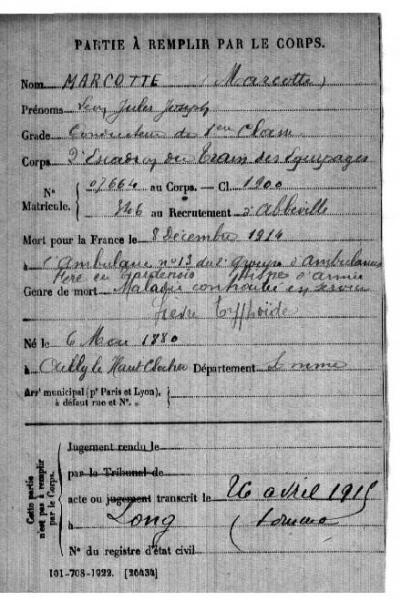 PARTIE À REMPLIR PAR LE CORPS.
Nom MARCOTTE (Marcotte)
Prénoms Léon Jules Joseph
Grade Conducteur de 1ere Classe
Corps 2e Escadron du Train des Equipages
N° Matricule. { 07664 au Corps. — Cl. 1900
846 au Recrutement d'Abbeville
Mort pour la France le 8 Décembre 1914
à l'Ambulance n° 13 du groupe d'ambulances
Fère en Tardenois
Genre de mort Maladie contractée en service
Fievre Typhoïde
Né le 6 Mai 1880
à Ailly le Haut Clocher Département Somme
Arrt municipal (pr Paris et Lyon), à défaut rue et N°.
Cette partie n'est pas à remplir par le Corps.
Jugement rendu le
par le Tribunal de
acte ou jugement transcrit le 26 avril 1915
à Long (Somme)
N° du registre d'état civil
101-708-1922. [26434]